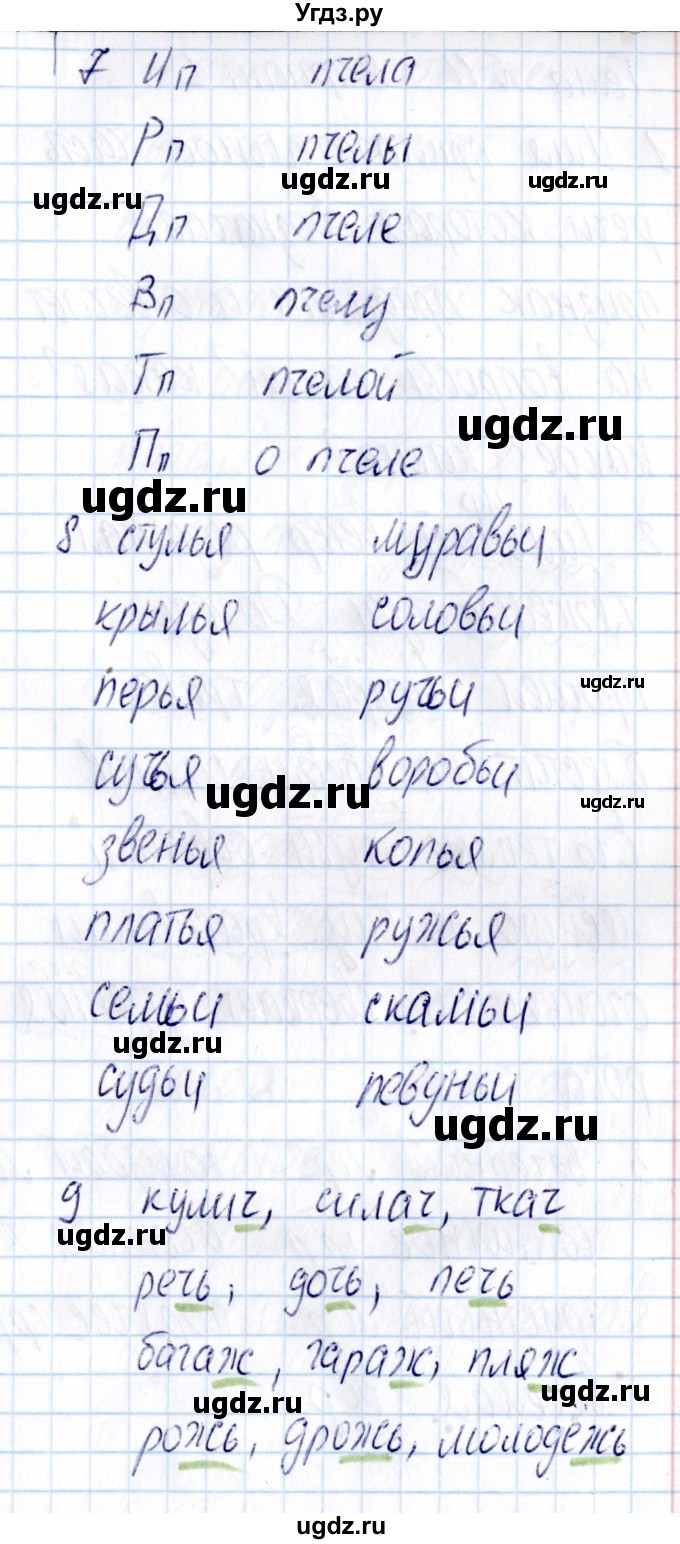 Угдз.ру
7 Ип пчела
Рп пчелы
ugdz.ru ugdz.ru ugdz.ru
Дп пчеле
Вп пчелу
Тп пчелой
ugdz.ru
Пп о пчеле
ugdz.ru
8 стулья муравьи
крылья соловьи
перья ручьи
ugdz.ru
сучья воробьи
ugdz.ru ugdz.ru
звенья копья
платья ружья
семьи скамьи
ugdz.ru
судьи певуньи
ugdz.ru
9 кулич, силач, ткач
ugdz.ru
речь, дочь, печь
багаж, гараж, пляж
ugdz.ru ugdz.ru
рожь, дрожь, молодёжь
ugdz.ru